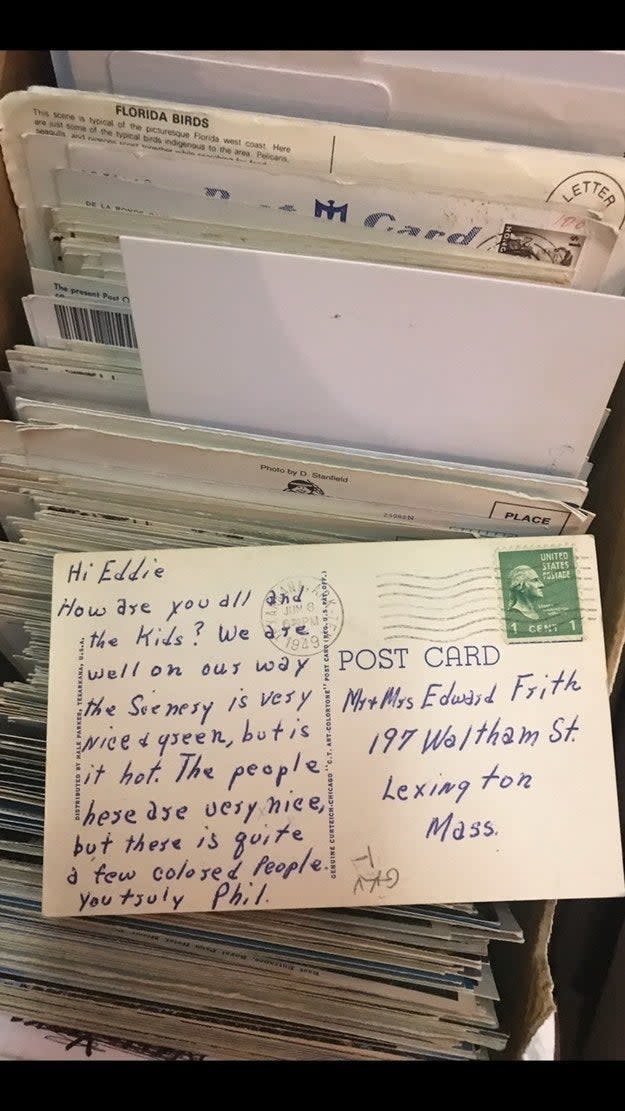 FLORIDA BIRDS
This scene is typical of the picturesque Florida west coast. Here
are just some of the typical birds indigenous to the area. Pelicans,
seagulls and
LETTER
Card
DE LA
The present Post O
Photo by D. Stanfield
PLACE
Hi Eddie
How are you all and
the Kids? We are
well on our way
the Scenery is very
Nice & green, but is
it hot. The people
here are very nice,
but there is quite
a few colored People.
You truly Phil.
DISTRIBUTED BY HALE PARKER, TEXARKANA, U.S.A.
GENUINE CURTEICH-CHICAGO "C.T. ART-COLORTONE" POST CARD (REG. U.S. PAT. OFF.)
JUN 6
PM
1949
UNITED
STATES
POSTAGE
1 CENT 1
POST CARD
Mr & Mrs Edward Frith
197 Waltham St.
Lexington
Mass.